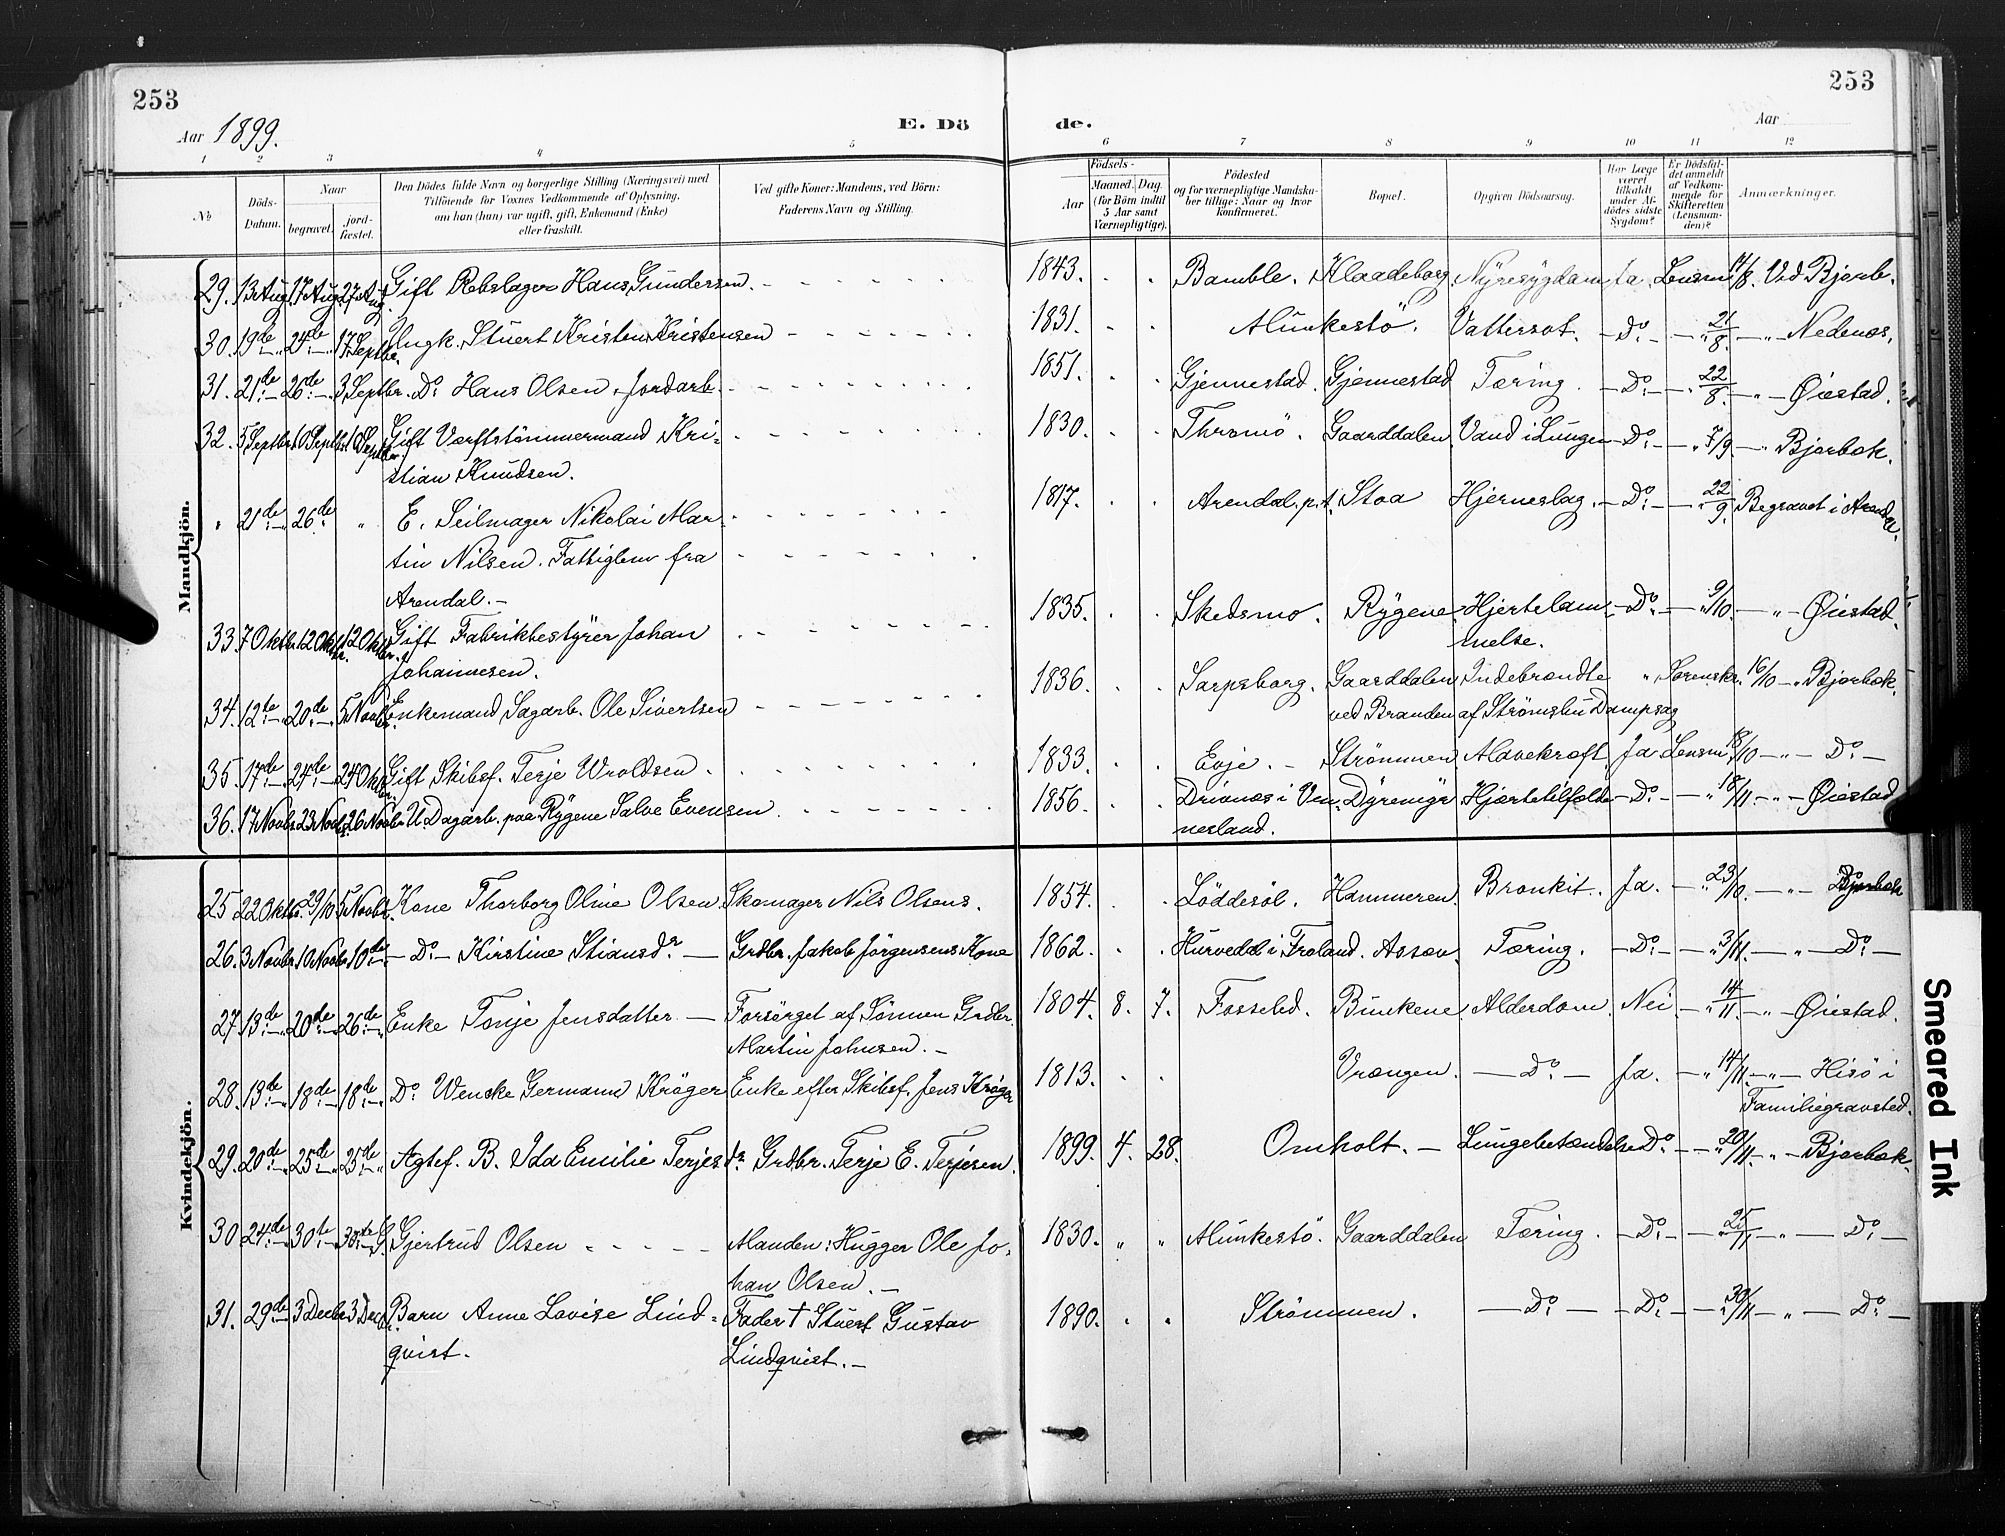 253
253
Aar 1899.
E. Dö de.
Aar
1 2 3 4 5 6 7 8 9 10 11 12
No
Döds-Datum.
Naar begravet. jord-fæstet.
Den Dödes fulde Navn og borgerlige Stilling (Næringsvei) med Tilföiende for Voxnes Vedkommende af Oplysning, om han (hun) var ugift, gift, Enkemand (Enke) eller fraskilt.
Ved gifte Koner: Mandens, ved Börn: Faderens Navn og Stilling.
Födsels- Aar Maaned. Dag. (for Börn indtil 5 Aar samt Værnepligtige).
Födested og for værnepligtige Mandskaber tillige: Naar og hvor konfirmeret.
Bopæl.
Opgiven Dödsaarsag.
Har Læge været tilkaldt under Afdödes sidste Sygdom?
Er Dödsfaldet anmeldt af Vedkommende for Skifteretten (Lensmanden)?
Anmærkninger.
Mandkjön.
29. 13 Aug 17 Aug 27 Aug. Gift Rebslager Hans Gundersen. 1843. Bamble. Klaadeborg. Nyresygdom Ja. Lensm. 17/8. Ved Bjorb.
30. 19de 24de 17 Septbr. Ungk. Stuert Kristen Kristensen 1831. Munkestö. Vattersot. Do. 21/8. Nedenæs.
31. 21de 26de 3 Septbr. Do Hans Olsen, Jordarb. 1851. Gjennestad. Gjennestad Tæring. Do. 22/8. Øiestad.
32. 5 Septbr. 10 Septbr. 10 Septbr. Gift Værftstömmermand Kri- 1830. Thromö. Gaarddalen. Vand i Lungen Do. 7/9 Bjorbæk.
stian Knudsen.
" 21de 26de " E. Seilmager Nikolai Mar- 1817. Arendal. p.t. Stoa Hjerneslag. Do. 22/9. Begravet i Arendal.
tin Nilsen. Fattiglem fra
Arendal.
33 7 Oktbr. 12 Oktbr. 12 Oktbr. Gift Fabrikbestyrer Johan 1835. Skedsmo. Rygene. Hjertelam- Do. 9/10 Øiestad.
Johannesen. melse.
34. 12te 20de 5 Novbr. Enkemand Sagarb. Ole Sivertsen 1836. Sarpsborg. Gaarddalen. Indebrændte " Sorenskr. 16/10 Bjorbæk.
ved Branden af Strömsbu Dampsag
35. 17de 24de 24 Oktbr. Gift Skibsf. Terje Wroldsen. 1833. Evje. Strömmen. Mavekræft. Ja Lensm. 18/10 Do.
36. 17 Novbr. 23 Novbr. 26 Novbr. U. Dagarb. paa Rygene Salve Evensen. 1856. Drivnæs i Ven- Dyremyr Hjertetilfælde Do. 18/11 Øiestad
nesland.
Kvindekjön.
25 22 Oktbr. 29/10 5 Novbr. Kone Thorborg Oline Olsen. Skomager Nils Olsens. 1854. Löddesöl. Hammeren. Bronkit. Ja. 23/10. Bjorbæk
26. 3 Novbr. 10 Novbr. 10de Do Kirstine Stiansdr Grdbr. Jakob Jörgensens Kone 1862. Hurvedal i Froland. Assæv. Tæring. Do. 3/11. Do.
27. 13de 20de 26de Enke Tonje Jensdatter Forsörget af Sönnen Grdbr. 1804. 8. 7. Fosselid. Bunkene. Alderdom. Nei 14/11. Øiestad.
Martin Johnsen.
28. 13de 18de 18de Do Wencke Germann Kröger Enke efter Skibsf. Jens Kröger 1813. Vrængen. Do Ja. 14/11. Hisö i
Familiegravsted.
29. 20de 25de 25de Ægtef. B. Ida Emilie Terjesdr. Grdbr. Terje E. Terjesen. 1899. 4. 28. Omholt. Lungebetændelse Do. 20/11. Bjorbæk.
30 24de 30te 30te G Gjertrud Olsen Manden: Hugger Ole Jo- 1830. " " Munkestö. Gaarddalen Tæring. Do. 25/11 Do.
han Olsen.
31. 29de 3 Decbr 3 Decbr Barn Anne Lovise Lind- Fader † Stuert Gustav 1890. Strömmen. Do. Do. 30/11 Do.
qvist. Lindqvist.
Smeared Ink